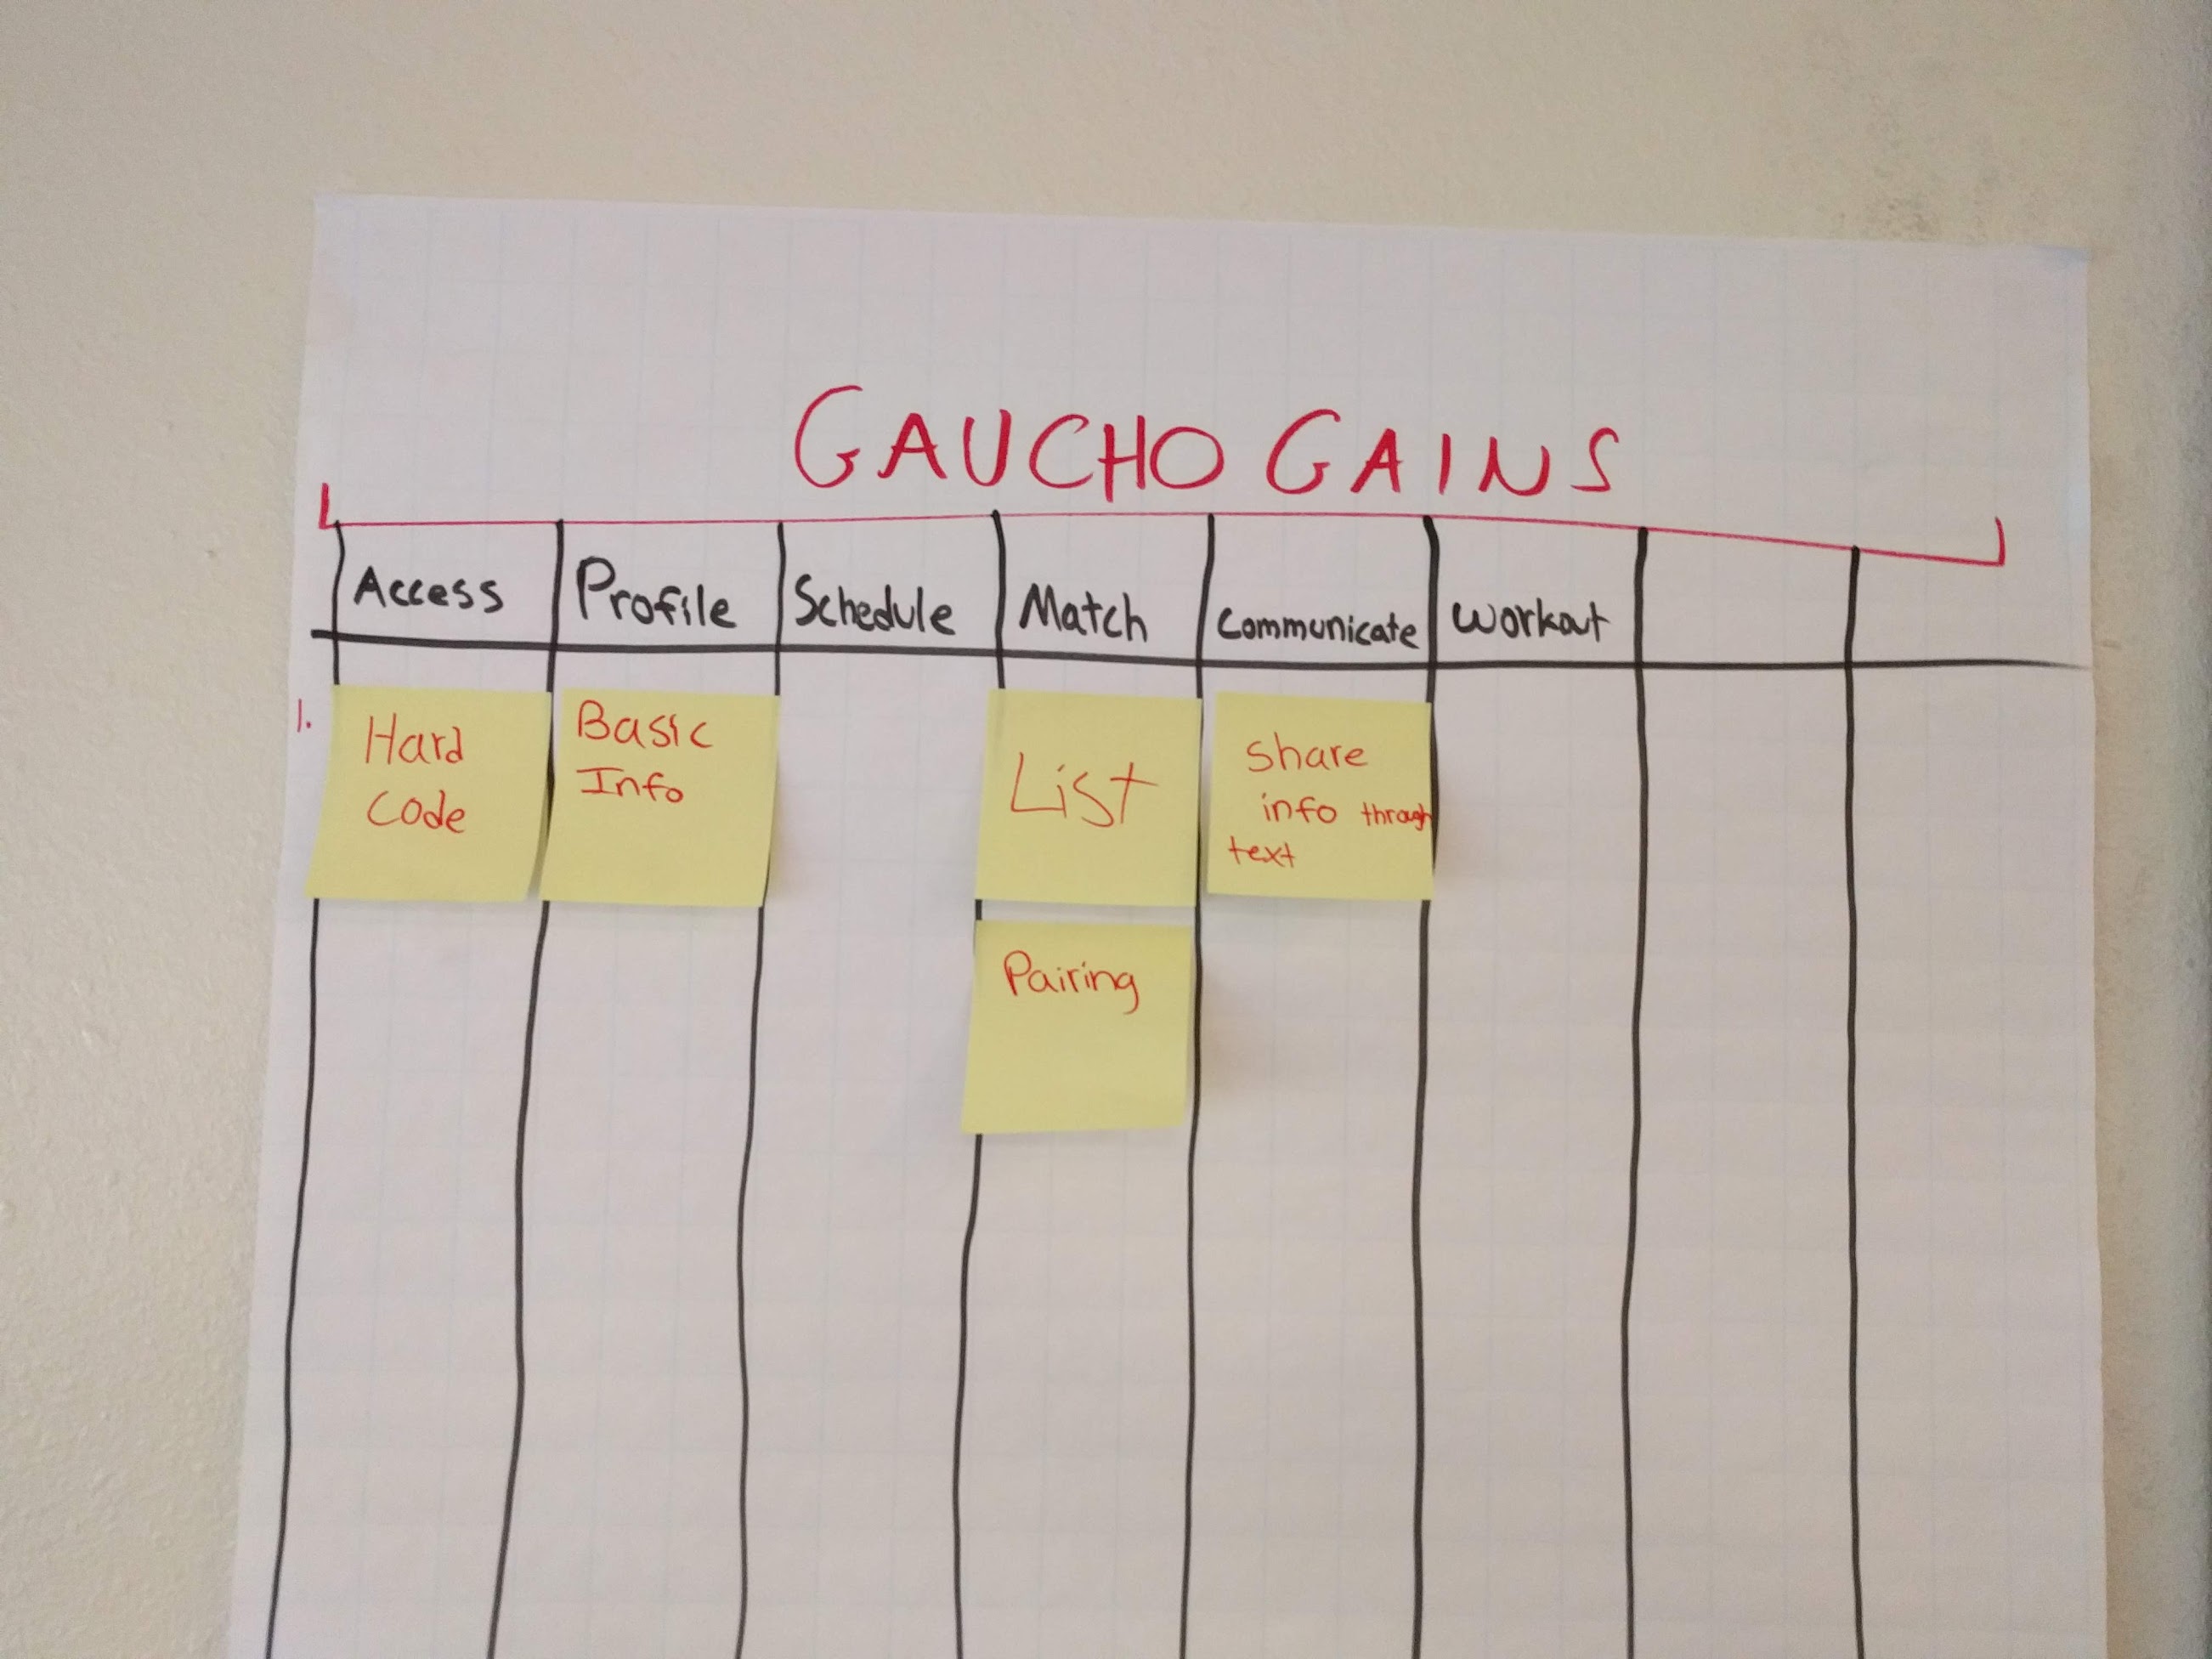 GAUCHO GAINS
Access Profile Schedule Match Communicate Workout
1.
Hard
Code
Basic
Info
List
Share
info through
text
Pairing